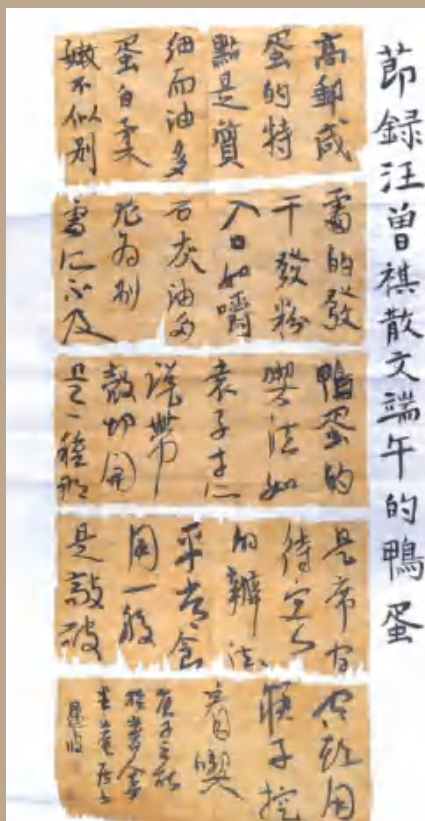 莭録汪曾祺散文端午的鴨蛋
高郵咸
蛋的特
點是質
细而油多
蛋白柔
嫩不似别
處的發
干發粉
入口如嚼
石灰油多
尤為别
處所不及
鴨蛋的
喫法如
袁子才所
说帶
殼切開
是一種那
是席间
待客
的辦法
平常食
用一般
是敲破
空頭用
筷子挖
喫
庚子之秋